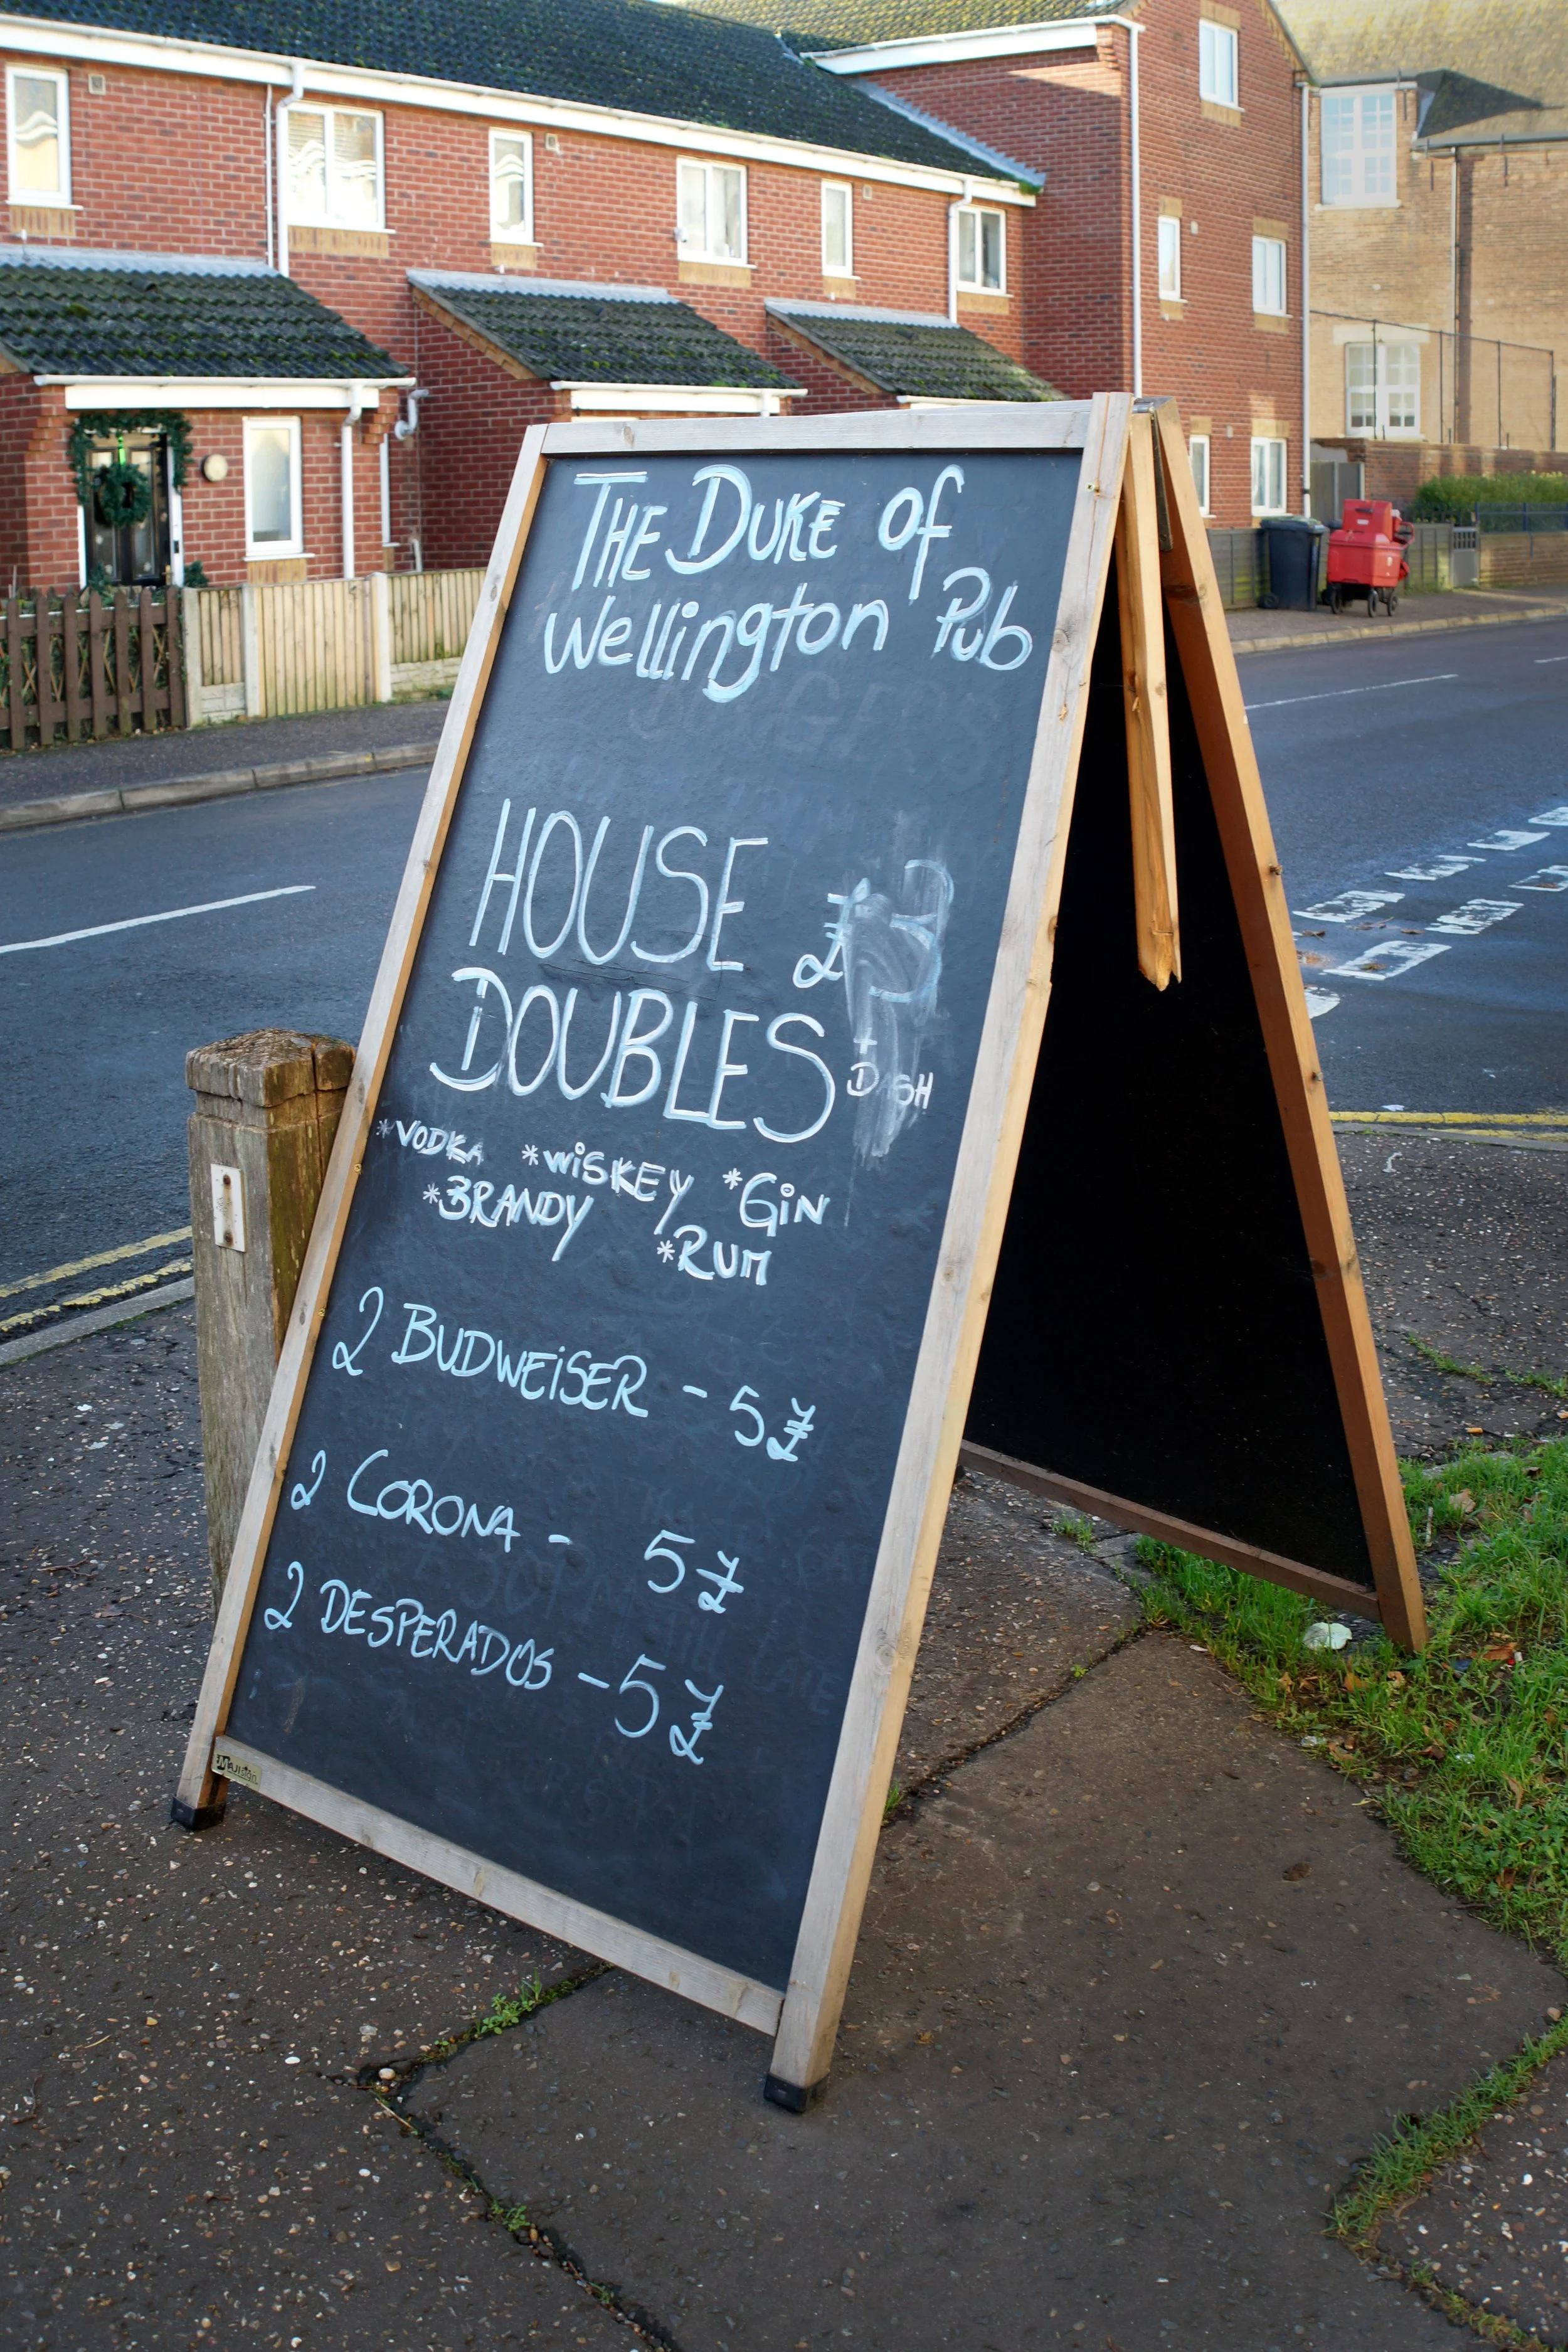 THE DUKE of
Wellington Pub
HOUSE £3
DOUBLES + DASH
*VODKA *WiSKEY *GiN
*BRANDY *RUM
2 BUDWEiSER - 5£
2 CORONA - 5£
2 DESPERADOS - 5£